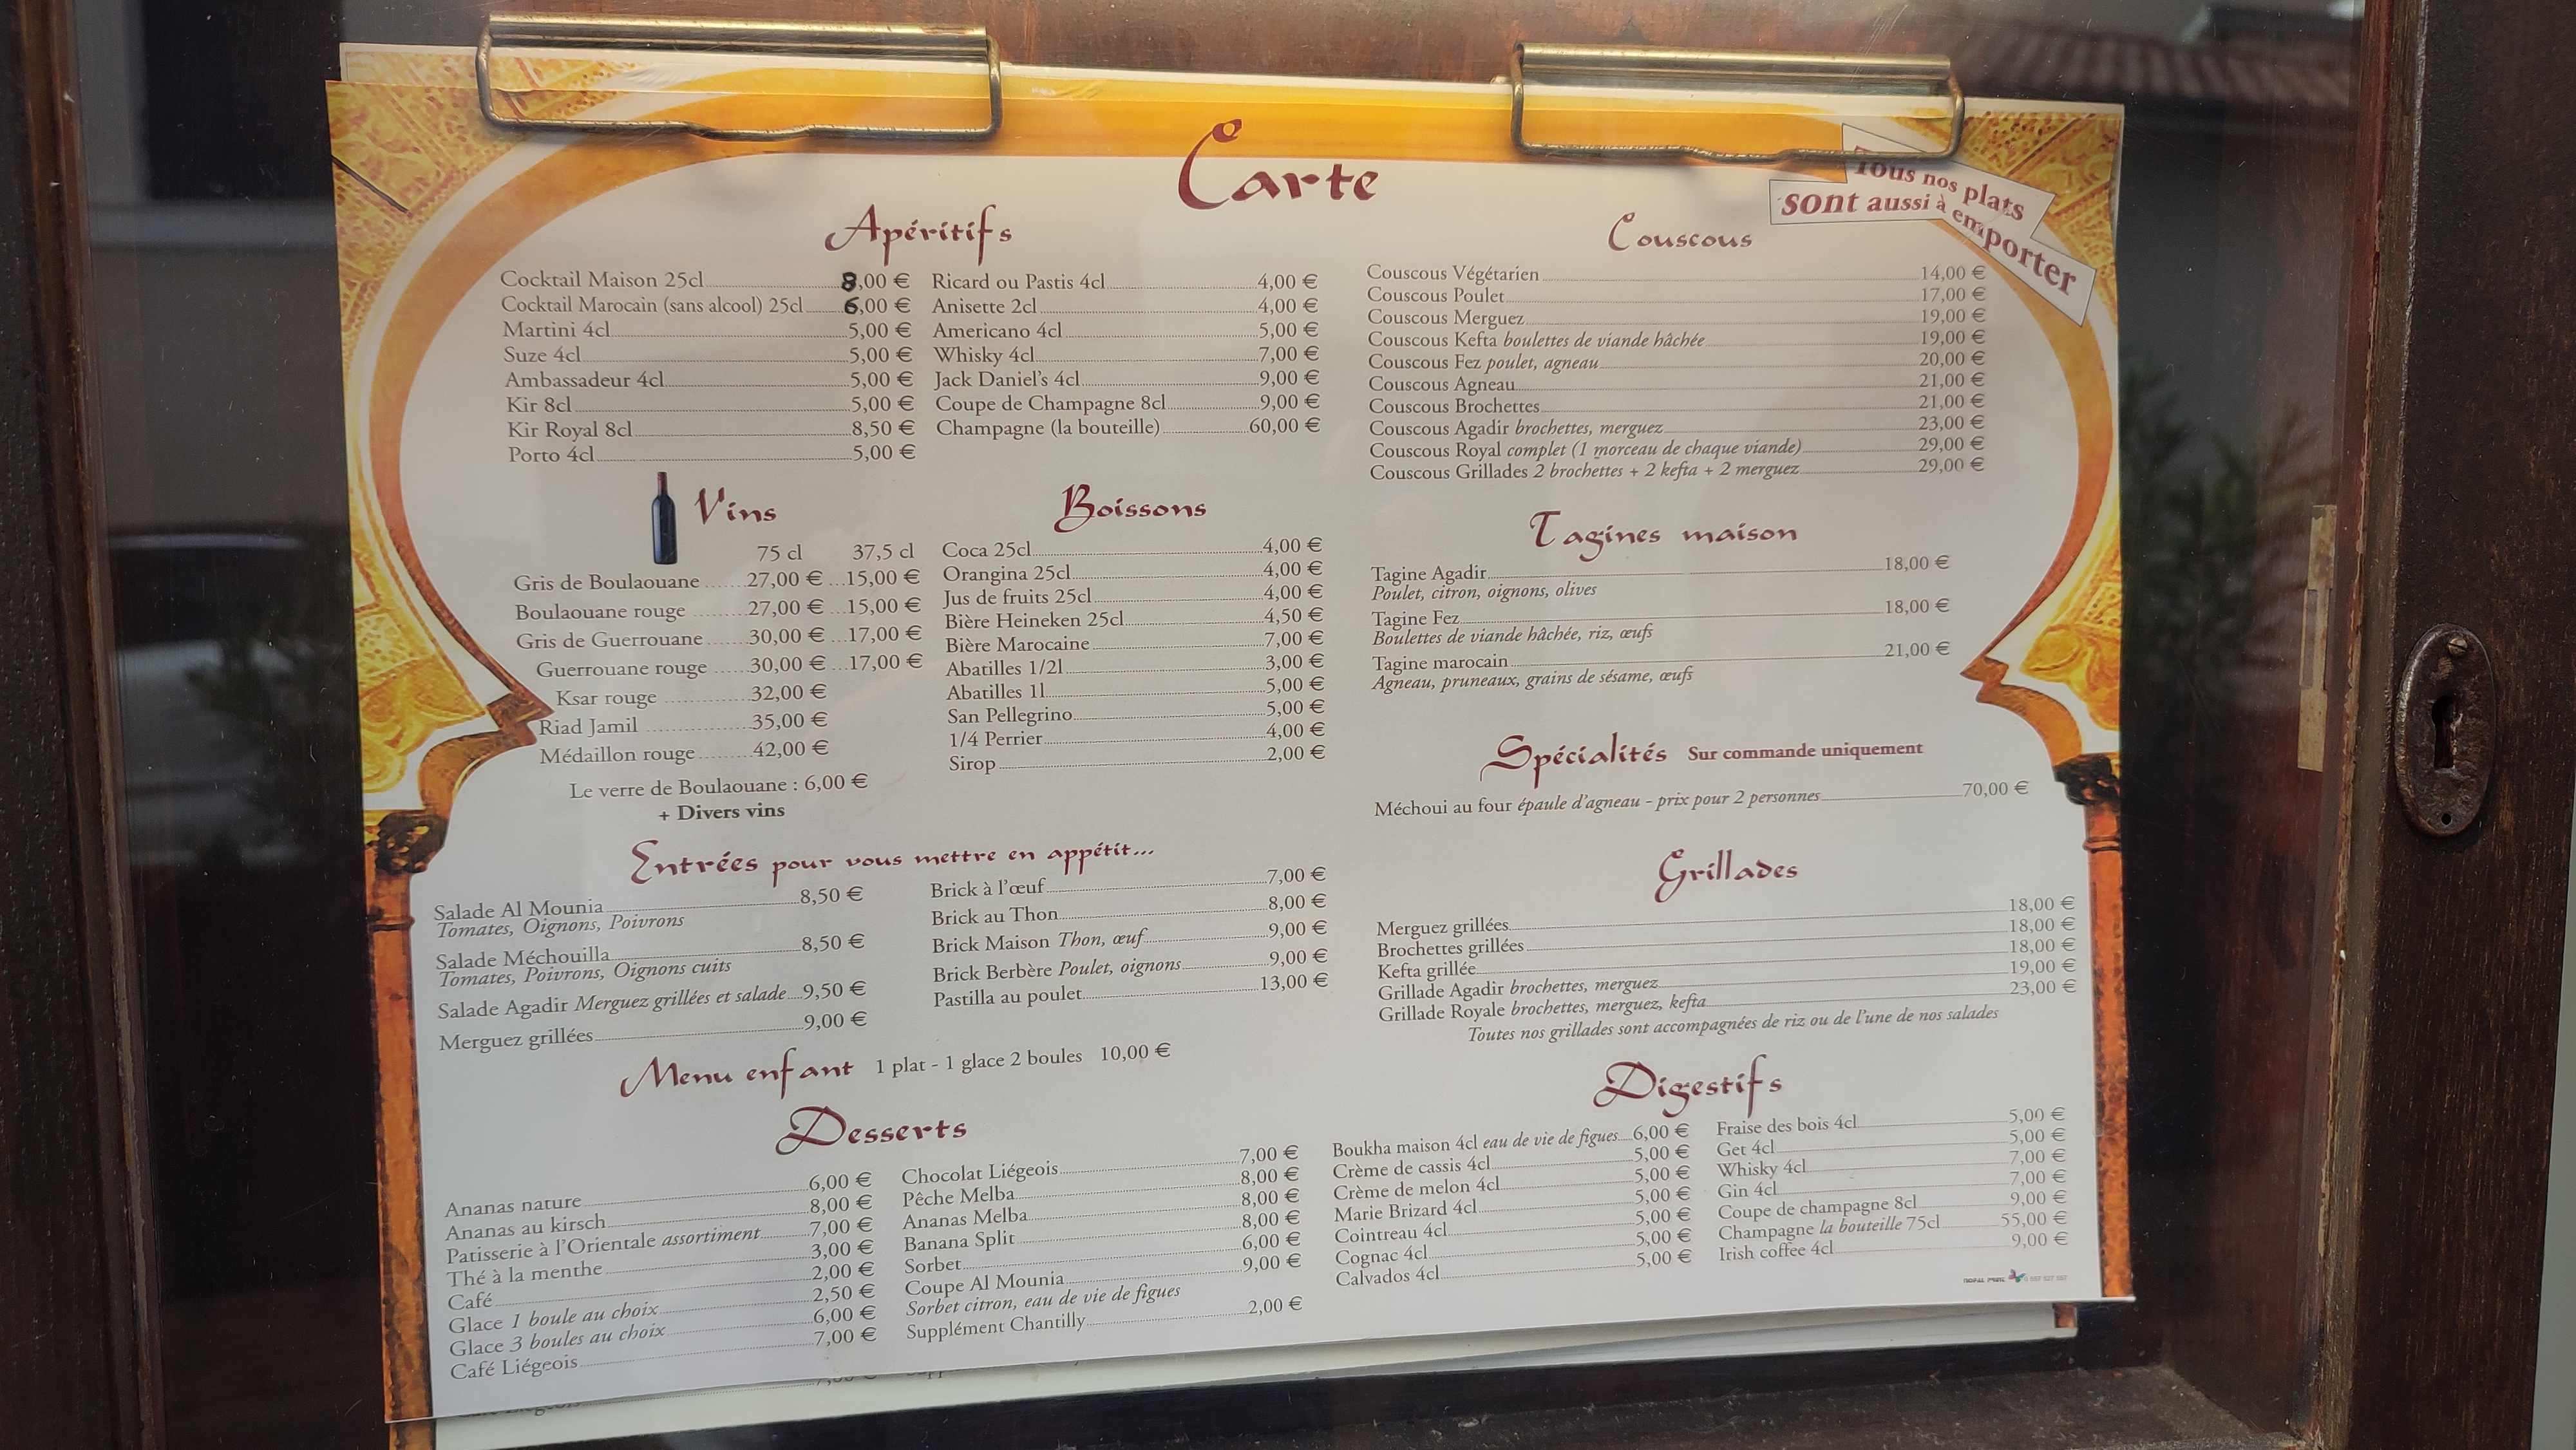 Carte
Tous nos plats
sont aussi à emporter
Apéritifs
Cocktail Maison 25cl 8,00 €
Cocktail Marocain (sans alcool) 25cl 6,00 €
Martini 4cl 5,00 €
Suze 4cl 5,00 €
Ambassadeur 4cl 5,00 €
Kir 8cl 5,00 €
Kir Royal 8cl 8,50 €
Porto 4cl 5,00 €
Ricard ou Pastis 4cl 4,00 €
Anisette 2cl 4,00 €
Americano 4cl 5,00 €
Whisky 4cl 7,00 €
Jack Daniel's 4cl 9,00 €
Coupe de Champagne 8cl 9,00 €
Champagne (la bouteille) 60,00 €
Vins
75 cl 37,5 cl
Gris de Boulaouane 27,00 € 15,00 €
Boulaouane rouge 27,00 € 15,00 €
Gris de Guerrouane 30,00 € 17,00 €
Guerrouane rouge 30,00 € 17,00 €
Ksar rouge 32,00 €
Riad Jamil 35,00 €
Médaillon rouge 42,00 €
Le verre de Boulaouane : 6,00 €
+ Divers vins
Boissons
Coca 25cl 4,00 €
Orangina 25cl 4,00 €
Jus de fruits 25cl 4,00 €
Bière Heineken 25cl 4,50 €
Bière Marocaine 7,00 €
Abatilles 1/2l 3,00 €
Abatilles 1l 5,00 €
San Pellegrino 5,00 €
1/4 Perrier 4,00 €
Sirop 2,00 €
Entrées pour vous mettre en appétit...
Salade Al Mounia 8,50 €
Tomates, Oignons, Poivrons
Salade Méchouilla 8,50 €
Tomates, Poivrons, Oignons cuits
Salade Agadir Merguez grillées et salade 9,50 €
Merguez grillées 9,00 €
Brick à l'œuf 7,00 €
Brick au Thon 8,00 €
Brick Maison Thon, œuf 9,00 €
Brick Berbère Poulet, oignons 9,00 €
Pastilla au poulet 13,00 €
Menu enfant 1 plat - 1 glace 2 boules 10,00 €
Desserts
Ananas nature 6,00 €
Ananas au kirsch 8,00 €
Patisserie à l'Orientale assortiment 7,00 €
Thé à la menthe 3,00 €
Café 2,00 €
Glace 1 boule au choix 2,50 €
Glace 3 boules au choix 6,00 €
Café Liégeois 7,00 €
Chocolat Liégeois 7,00 €
Pêche Melba 8,00 €
Ananas Melba 8,00 €
Banana Split 8,00 €
Sorbet 6,00 €
Coupe Al Mounia 9,00 €
Sorbet citron, eau de vie de figues
Supplément Chantilly 2,00 €
Couscous
Couscous Végétarien 14,00 €
Couscous Poulet 17,00 €
Couscous Merguez 19,00 €
Couscous Kefta boulettes de viande hâchée 19,00 €
Couscous Fez poulet, agneau 20,00 €
Couscous Agneau 21,00 €
Couscous Brochettes 21,00 €
Couscous Agadir brochettes, merguez 23,00 €
Couscous Royal complet (1 morceau de chaque viande) 29,00 €
Couscous Grillades 2 brochettes + 2 kefta + 2 merguez 29,00 €
Tagines maison
Tagine Agadir 18,00 €
Poulet, citron, oignons, olives
Tagine Fez 18,00 €
Boulettes de viande hâchée, riz, œufs
Tagine marocain 21,00 €
Agneau, pruneaux, grains de sésame, œufs
Spécialités Sur commande uniquement
Méchoui au four épaule d'agneau - prix pour 2 personnes 70,00 €
Grillades
Merguez grillées 18,00 €
Brochettes grillées 18,00 €
Kefta grillée 18,00 €
Grillade Agadir brochettes, merguez 19,00 €
Grillade Royale brochettes, merguez, kefta 23,00 €
Toutes nos grillades sont accompagnées de riz ou de l'une de nos salades
Digestifs
Boukha maison 4cl eau de vie de figues 6,00 €
Crème de cassis 4cl 5,00 €
Crème de melon 4cl 5,00 €
Marie Brizard 4cl 5,00 €
Cointreau 4cl 5,00 €
Cognac 4cl 5,00 €
Calvados 4cl 5,00 €
Fraise des bois 4cl 5,00 €
Get 4cl 5,00 €
Whisky 4cl 7,00 €
Gin 4cl 7,00 €
Coupe de champagne 8cl 9,00 €
Champagne la bouteille 75cl 55,00 €
Irish coffee 4cl 9,00 €